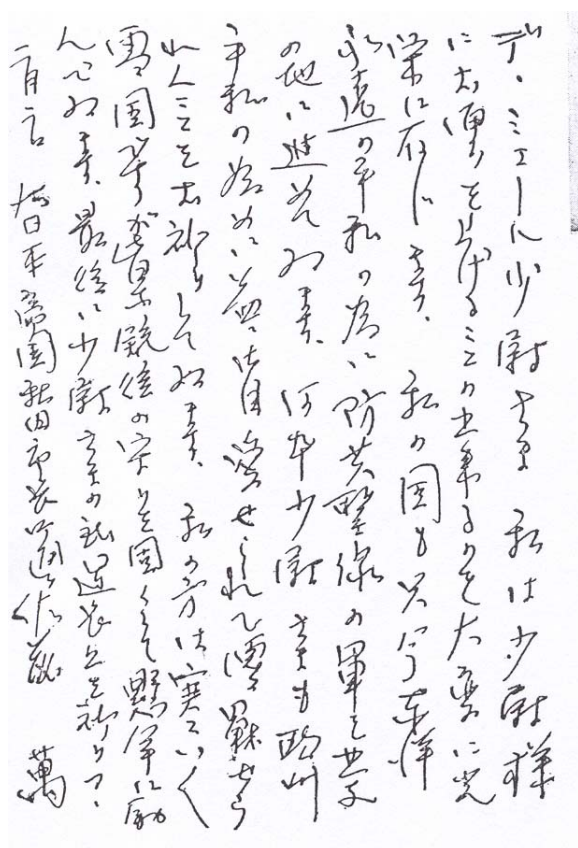 デ・ミエール少尉さま 私は少尉様
にお便りを上げることの出来るのを大変に光
栄に存じます。 私の国も只今東洋
永遠の平和の為に防共聖戦の軍を
の地に進めて居ます。 何卒少尉さまも欧州
平和の為めに益々御自愛せられて御奮戦せら
れんことをお祈りして居ます。 私の方は寒い〱
雪国ですが皆銃後の守りを固くして懸命に励
んで居ます。最後に少尉さまの武運長久を祈りつゝ
大日本帝国秋田 佐藤 萬